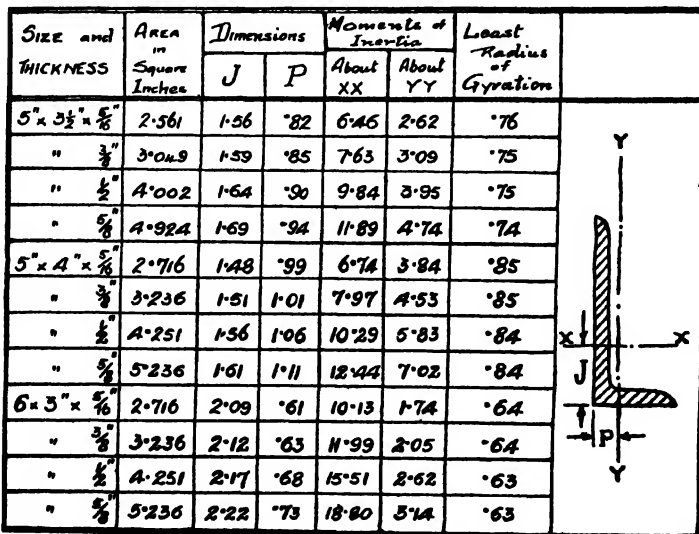 SIZE and THICKNESS AREA in Square Inches Dimensions Moments of Inertia Least Radius of Gyration
J P About XX About YY
5" x 3½" x 5/16" 2·561 1·56 ·82 6·46 2·62 ·76
" 3/8" 3·049 1·59 ·85 7·63 3·09 ·75
" ½" 4·002 1·64 ·90 9·84 3·95 ·75
" 5/8" 4·924 1·69 ·94 11·89 4·74 ·74
5" x 4" x 5/16" 2·716 1·48 ·99 6·74 3·84 ·85
" 3/8" 3·236 1·51 1·01 7·97 4·53 ·85
" ½" 4·251 1·56 1·06 10·29 5·83 ·84
" 5/8" 5·236 1·61 1·11 12·44 7·02 ·84
6 x 3" x 5/16" 2·716 2·09 ·61 10·13 1·74 ·64
" 3/8" 3·236 2·12 ·63 11·99 2·05 ·64
" ½" 4·251 2·17 ·68 15·51 2·62 ·63
" 5/8" 5·236 2·22 ·73 18·80 3·14 ·63
Y
X X
J
P
Y